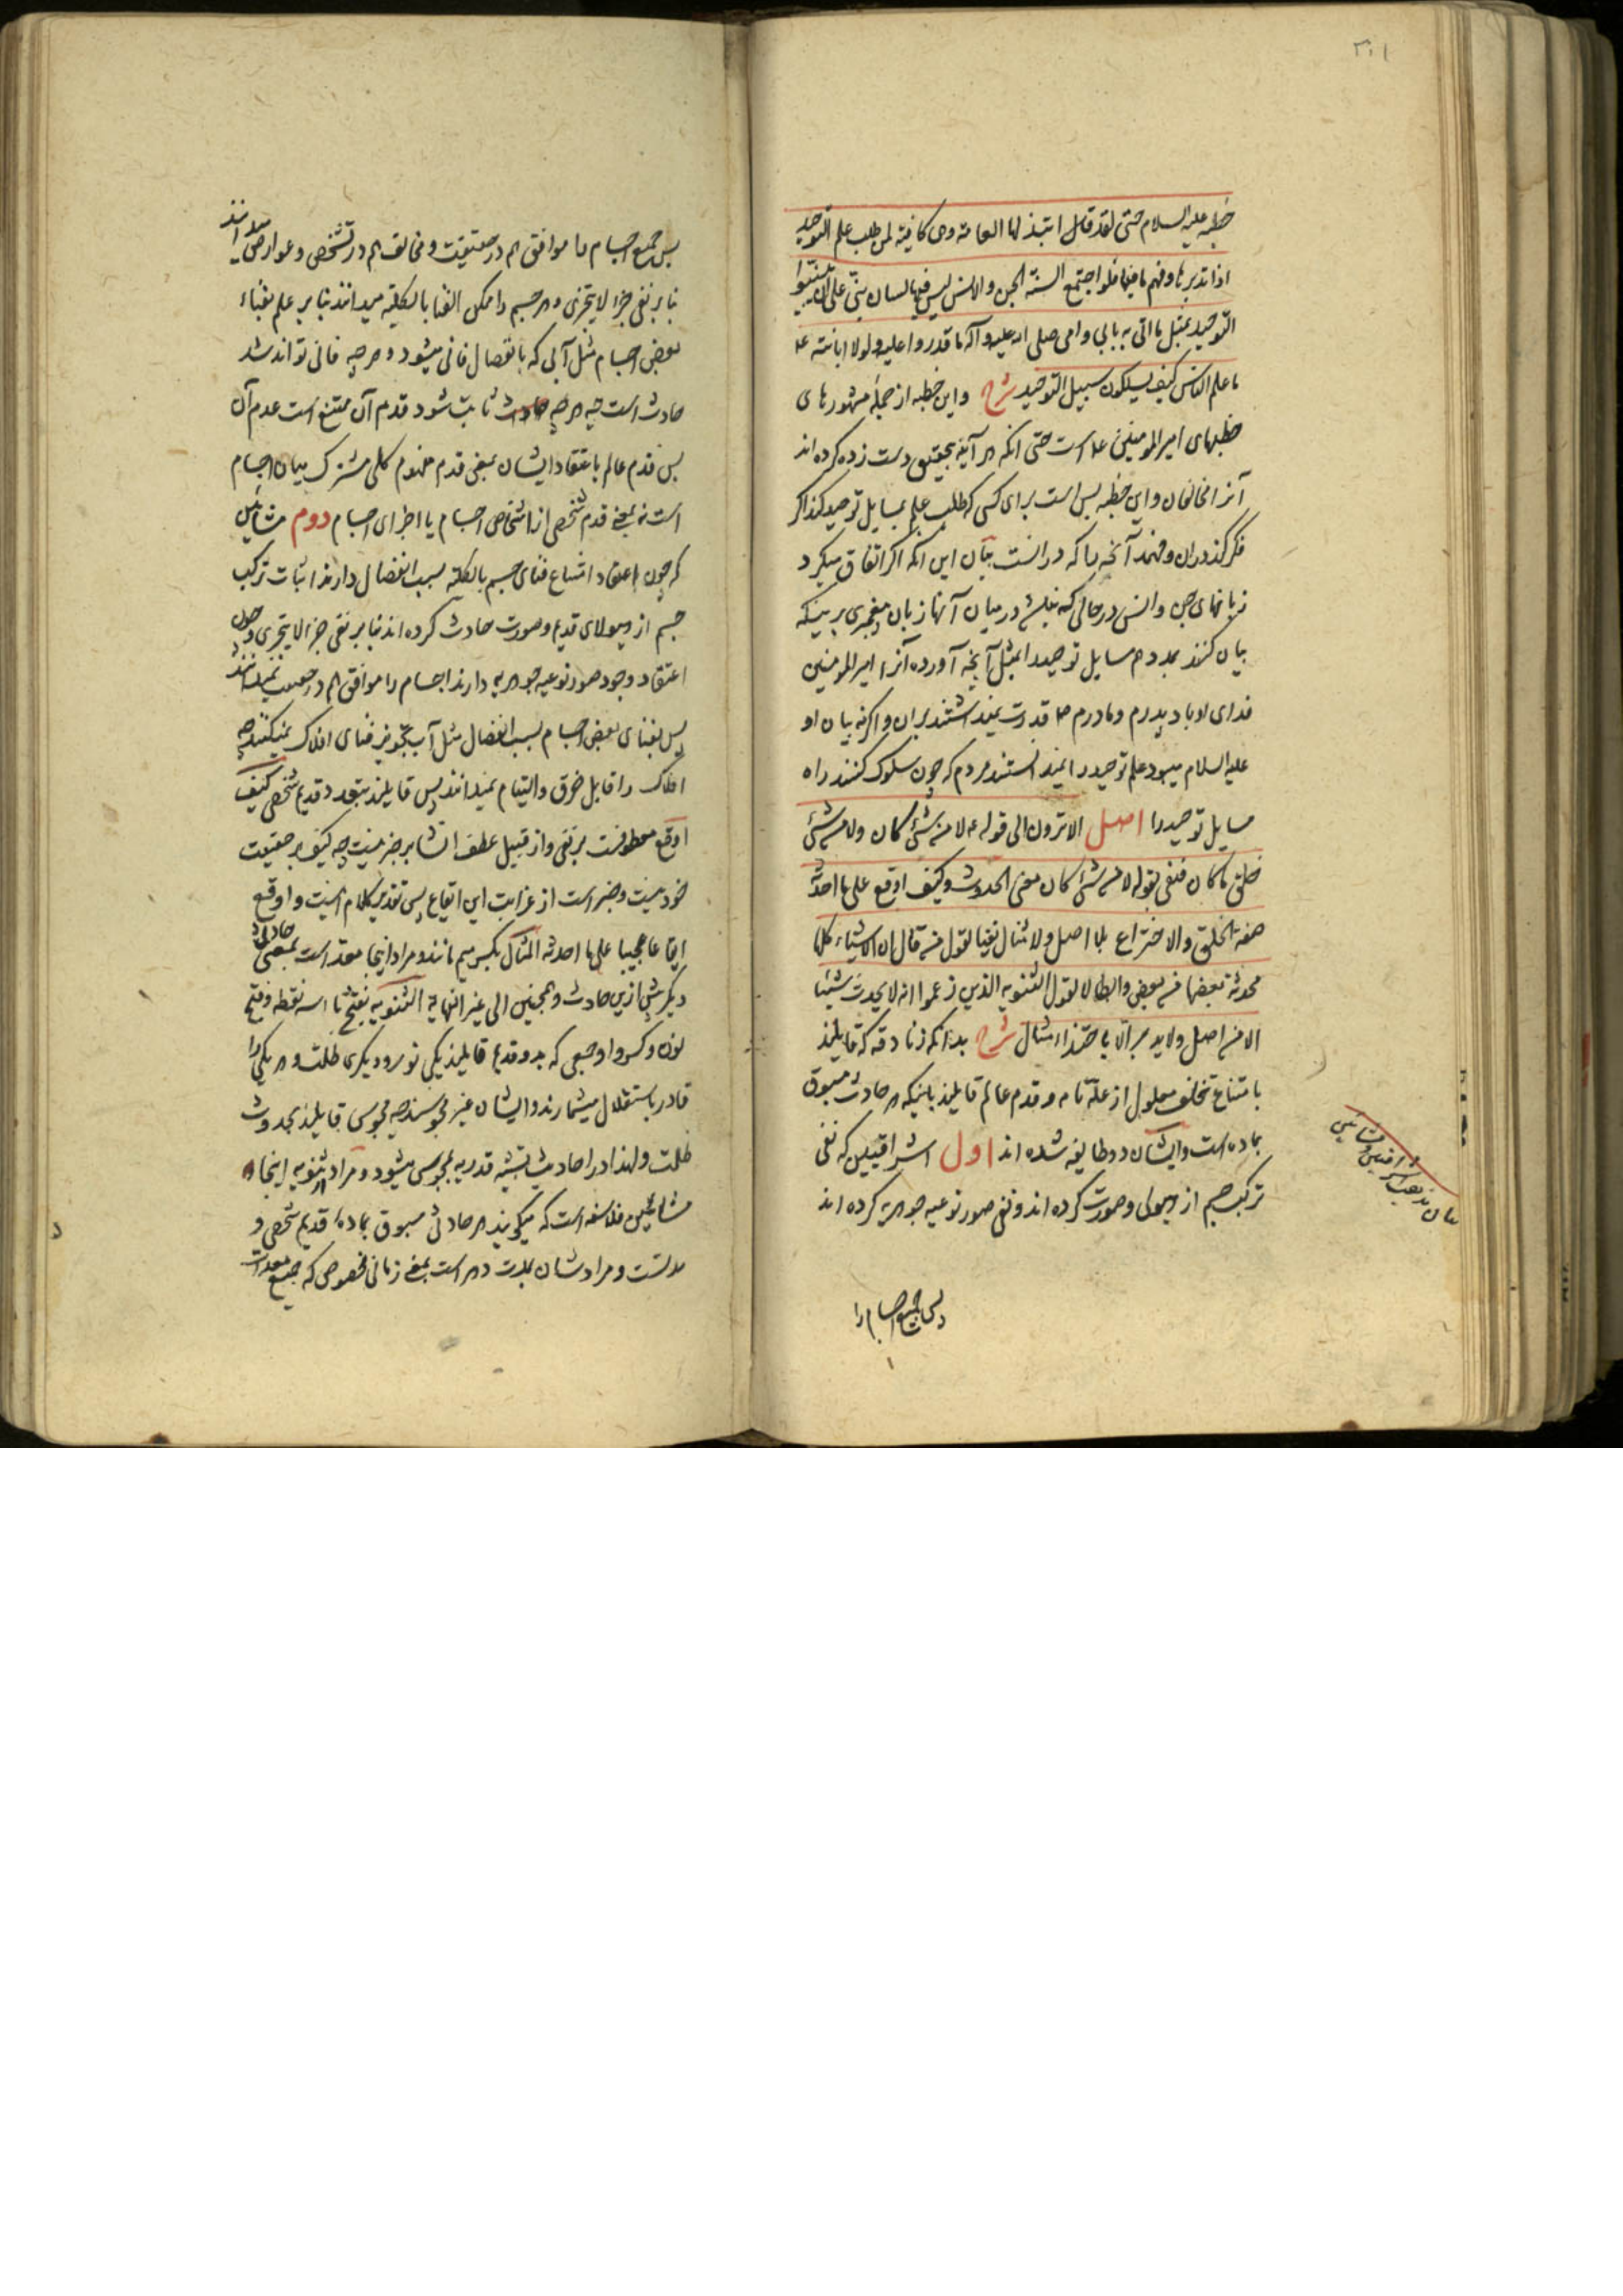 ۳۰۱
خطبه علیه السلام حتی لقد قال ابتذلها العامة وهی کافیة لمن طلب علم التوحید
اذا تدبرها وفهم ما فیها فلو اجتمع السنة الجن والانس لیس فیها لسان نبی علی ان یبینوا
التوحید بمثل ما اتی به بابی وامی صلی الله علیه وآله ما قدروا علیه ولولا ابانته ع
ما علم الناس کیف یسلکون سبیل التوحید شرح واین خطبه از جمله مشهورهای
خطبهای امیر المومنین ع است حتی انکه هر آینه بتحقیق دست زده کرده اند
آنرا مخالفان واین خطبه بس است برای کسی که طلب علم بمسایل توحید کند اکر
فکر کند در ان وفهمد آنچه را که در انست بیان این انکه اکر اتفاق میکرد
زبانهای جن وانس در حالی که نباشد در میان آنها زبان پیغمبری بر اینکه
بیان کنند بمردم مسایل توحید را بمثل آنچه آورده آنرا امیر المومنین
فدای او باد پدرم ومادرم ص قدرت نمیداشتند بران واکر نه بیان او
علیه السلام میبود علم توحید را نمیدانستند مردم که چون سلوک کنند راه
مسایل توحید را اصل الا ترون الی قوله ع لا من شیٔ کان ولا من شیٔ
خلق ما کان فنفی بقوله لا من شیٔ کان معنی الحدوث وکیف اوقع علی ما احدثه
صفة الخلق والاختراع بلا اصل ولا مثال نفیا لقول من قال ان الاشیاء کلها
محدثة بعضها من بعض وابطالا لقول الثنویه الذین زعموا انه لا یحدث شیئا
الا من اصل ولا یدبر الا باحتذاء مثال شرح بدانکه زنادقه که قایلند
بامتناع تخلف معلول از علة تامه وقدم عالم قایلند باینکه هر حادث مسبوق
بماده است وایشان دو طایفه شده اند اول اشراقیین که نفی
ترکب جسم از هیولی وصورت کرده اند ونفی صور نوعیه جوهریه کرده اند
بیان مذهب اشراقیین ومشائین
پس جمیع اجسام را
پس جمیع اجسام را موافق هم در حقیقت ومخالف هم در تشخص وعوارض میدانند
بنا بر نفی جزء لا یتجزی وهر جسم را ممکن الفنا بالکلیه میدانند بنا بر علم بفناء
بعض اجسام مثل آبی که بانفصال فانی میشود وهر چه فانی تواند شد
حادث است چه هر چه ثابت شود قدم آن ممتنع است عدم آن
پس قدم عالم باعتقاد ایشان بمعنی قدم مفهوم کلی مشترک میان اجسام
است نه بمعنی قدم شخصی از اشخاص اجسام یا اجزای اجسام دوم مشائین
که چون اعتقاد امتناع فنای جسم بالکلیه بسبب انفصال دارند اثبات ترکب
جسم از هیولای قدیم وصورت حادث کرده اند بنا بر نفی جزء لا یتجزی وچون
اعتقاد وجود صور نوعیه جوهریه دارند اجسام را موافق هم در حقیقت نمیدانند
پس بفنای بعض اجسام بسبب انفصال مثل آب تجویز فنای افلاک نمیکنند چه
افلاک را قابل خرق والتیام نمیدانند پس قایلند بتعدد قدیم شخصی کیف
اوقع معطوفست بر نفی واز قبیل عطف انشا بر خبر نیست چه کیف بر حقیقت
خود نیست وخبر است از غرابت این ایقاع پس تقدیر کلام اینست واوقع
ایقاعا عجیبا علی ما احدثه المثال بکسر میم مانند ومراد اینجا معد است بمعنی حادثی
دیکر پیش ازین حادث وهمچنین الی غیر النهایة الثنویه بفتح ثاء سه نقطه وفتح
نون وکسر واو جمعی که بدو قدیم قایلند یکی نور ودیکری ظلمت وهر یکی را
قادر باستقلال میشمارند وایشان غیر مجوسند چه مجوسی قایلند بحدوث
ظلمت ولهذا در احادیث تشبیه قدریه بمجوسی میشود ومراد از ثنویه اینجا
مشائیین فلاسفه است که میکویند هر حادثی مسبوق بماده قدیم شخصی و
مدتست ومرادشان بمدت دهر است بمعنی زمانی مخصوص که جمیع معدات